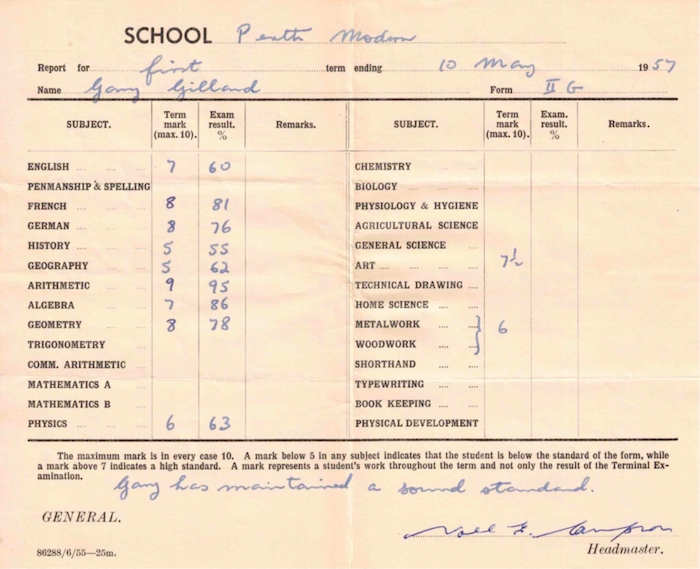 SCHOOL Perth Modern
Report for first term ending 10 May 1957
Name Gary Gilland Form II G
SUBJECT. Term mark (max. 10). Exam result. % Remarks. SUBJECT. Term mark (max. 10). Exam. result. % Remarks.
ENGLISH 7 60 CHEMISTRY
PENMANSHIP & SPELLING BIOLOGY
FRENCH 8 81 PHYSIOLOGY & HYGIENE
GERMAN 8 76 AGRICULTURAL SCIENCE
HISTORY 5 55 GENERAL SCIENCE
GEOGRAPHY 5 62 ART 7½
ARITHMETIC 9 95 TECHNICAL DRAWING
ALGEBRA 7 86 HOME SCIENCE
GEOMETRY 8 78 METALWORK } 6
TRIGONOMETRY WOODWORK
COMM. ARITHMETIC SHORTHAND
MATHEMATICS A TYPEWRITING
MATHEMATICS B BOOK KEEPING
PHYSICS 6 63 PHYSICAL DEVELOPMENT
The maximum mark is in every case 10. A mark below 5 in any subject indicates that the student is below the standard of the form, while
a mark above 7 indicates a high standard. A mark represents a student's work throughout the term and not only the result of the Terminal Ex-
amination.
Gary has maintained a sound standard.
GENERAL.
Noel F. Sampson
Headmaster.
86288/6/55—25m.